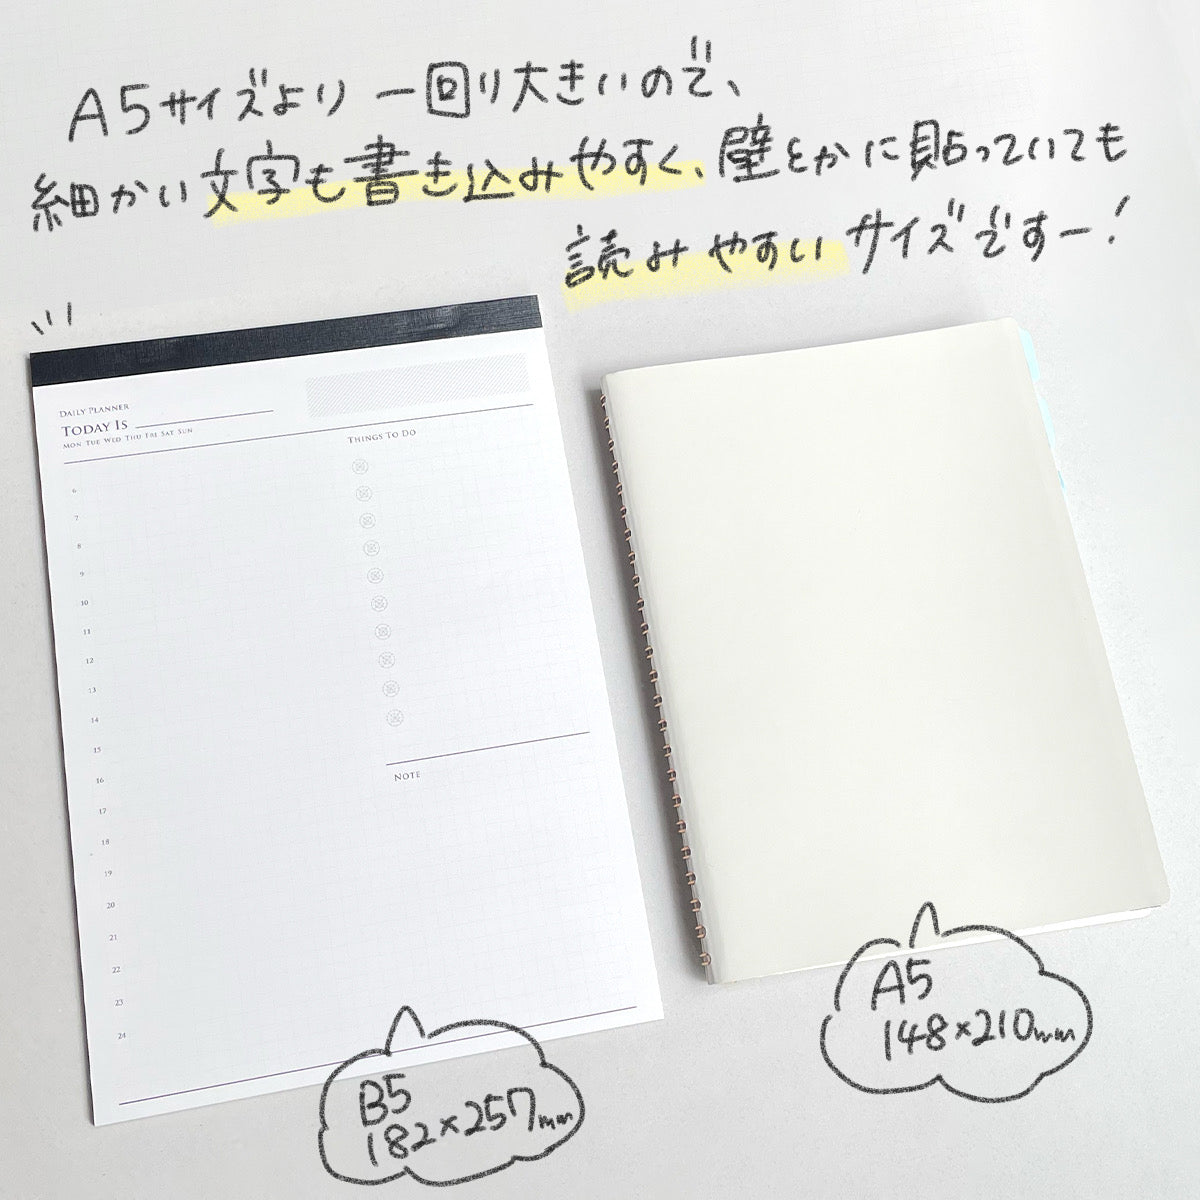 A5サイズより一回り大きいので、
細かい文字も書き込みやすく、壁とかに貼っていても
読みやすいサイズですー!
DAILY PLANNER
TODAY IS
MON TUE WED THU FRI SAT SUN
THINGS TO DO
6
7
8
9
10
11
12
13
14
15
16
17
18
19
20
21
22
23
24
NOTE
B5
182×257mm
A5
148×210mm